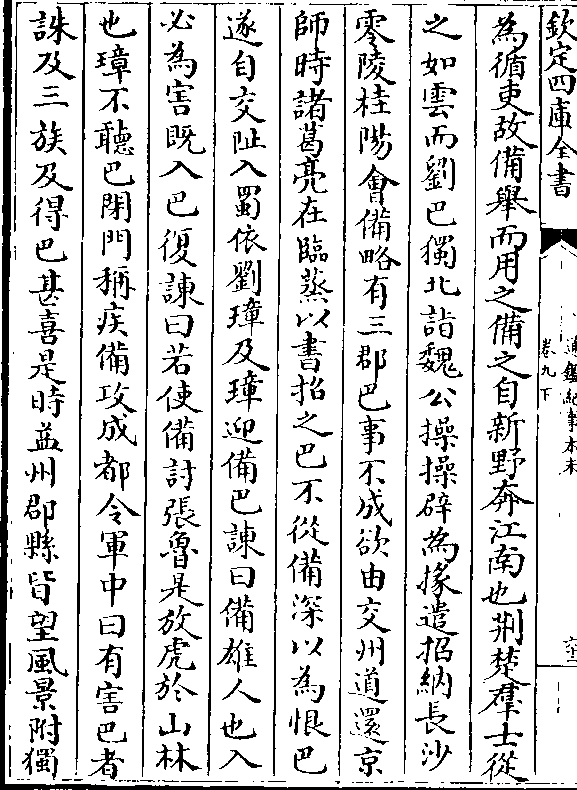 欽定四庫全書
通鑑紀事本末
卷九下
為循吏故備舉而用之備之自新野奔江南也荆楚羣士從
之如雲而劉巴獨北詣魏公操操辟為掾遣招納長沙
零陵桂陽會備略有三郡巴事不成欲由交州道還京
師時諸葛亮在臨蒸以書招之巴不從備深以為恨巴
遂自交阯入蜀依劉璋及璋迎備巴諫曰備雄人也入
必為害既入巴復諫曰若使備討張魯是放虎於山林
也璋不聽巴閉門稱疾備攻成都令軍中曰有害巴者
誅及三族及得巴甚喜是時益州郡縣皆望風景附獨